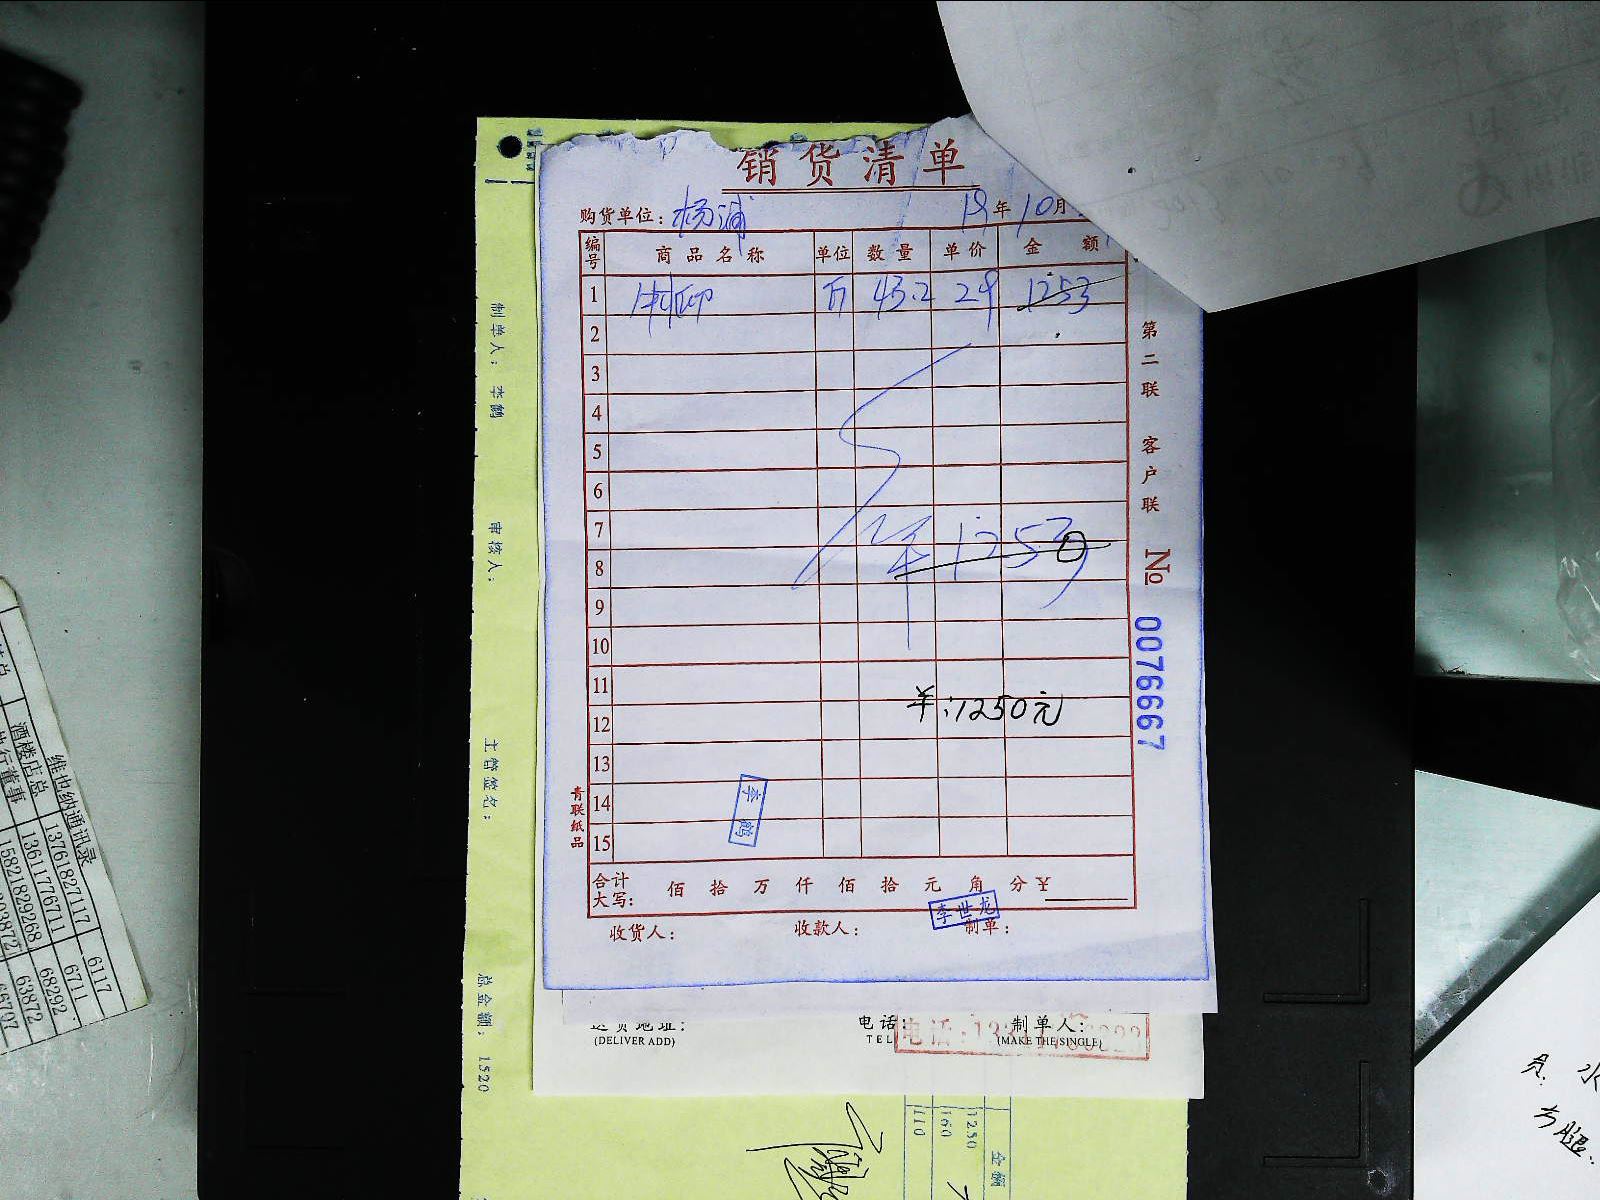 销货清单
购货单位: 杨浦 19年10月
编号 商品名称 单位 数量 单价 金额
1 斤 43.2 29 1253
2
3
4
5
6
7
¥1253
8
9
10
11
¥:1250元
12
13
14
15
李鹤
合计大写: 佰拾万仟佰拾元角分¥
李世龙
收货人: 收款人: 制单:
青联纸品
第二联 客户联
№ 0076667
送货地址: 电话 制单人:
(DELIVER ADD) TEL (MAKE THE SINGLE)
电话:
制单人: 李鹤
审核人:
主管签名:
总金额: 1520
金额
1250
160
110
维也纳通讯录
酒楼店总 13761827117 6117
13611776711 6711
15821829268 68292
63872